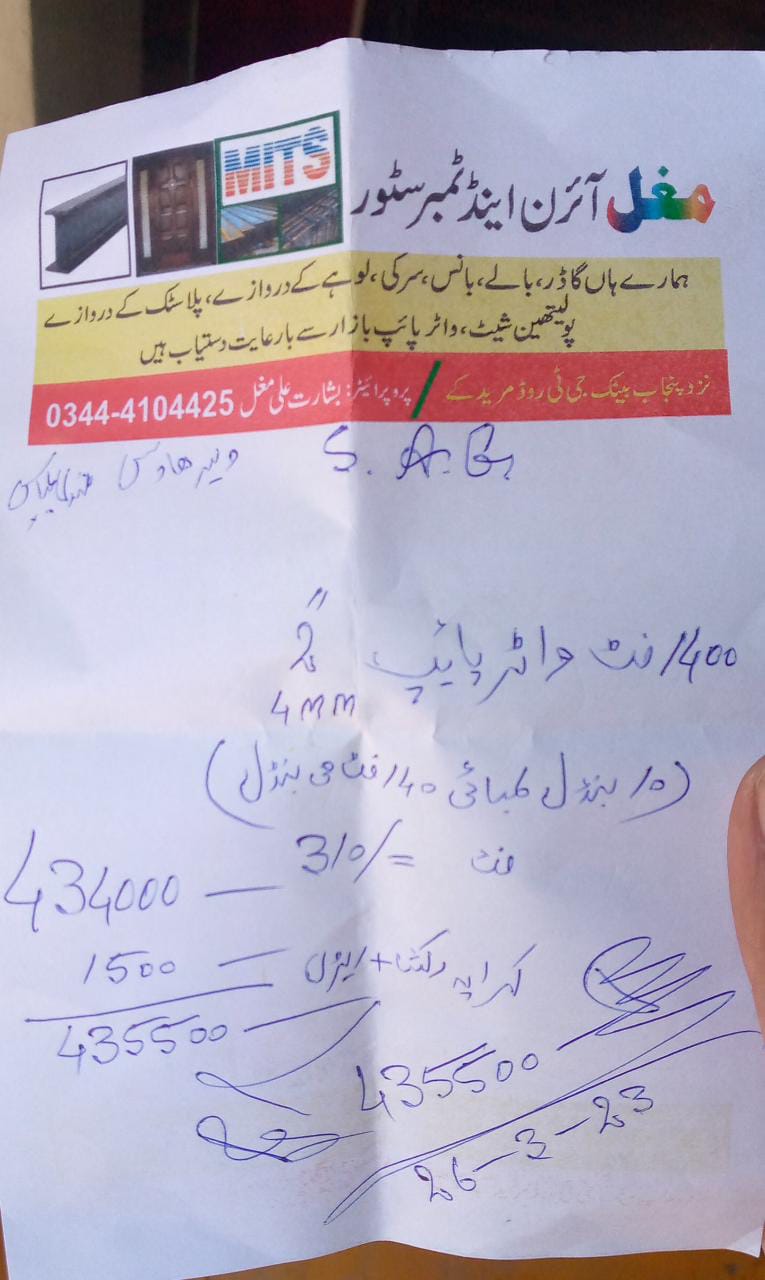 MITS
مغل آئرن اینڈ ٹمبر سٹور
ہمارے ہاں گاڈر، بالے، بانس، سرکی، لوہے کے دروازے، پلاسٹک کے دروازے
پولیتھین شیٹ، واٹر پائپ بازار سے بارعایت دستیاب ہیں
نزد پنجاب بینک جی ٹی روڈ مریدکے / پروپرائیٹر: بشارت علی مغل 0344-4104425
S. A. G.
1400 فٹ واٹر پائپ 2"
4mm
(10 بنڈل لمبائی 140 فٹ فی بنڈل)
فٹ 310/= — 434000
کرایہ رکشہ + — 1500
435500
435500
26-3-23